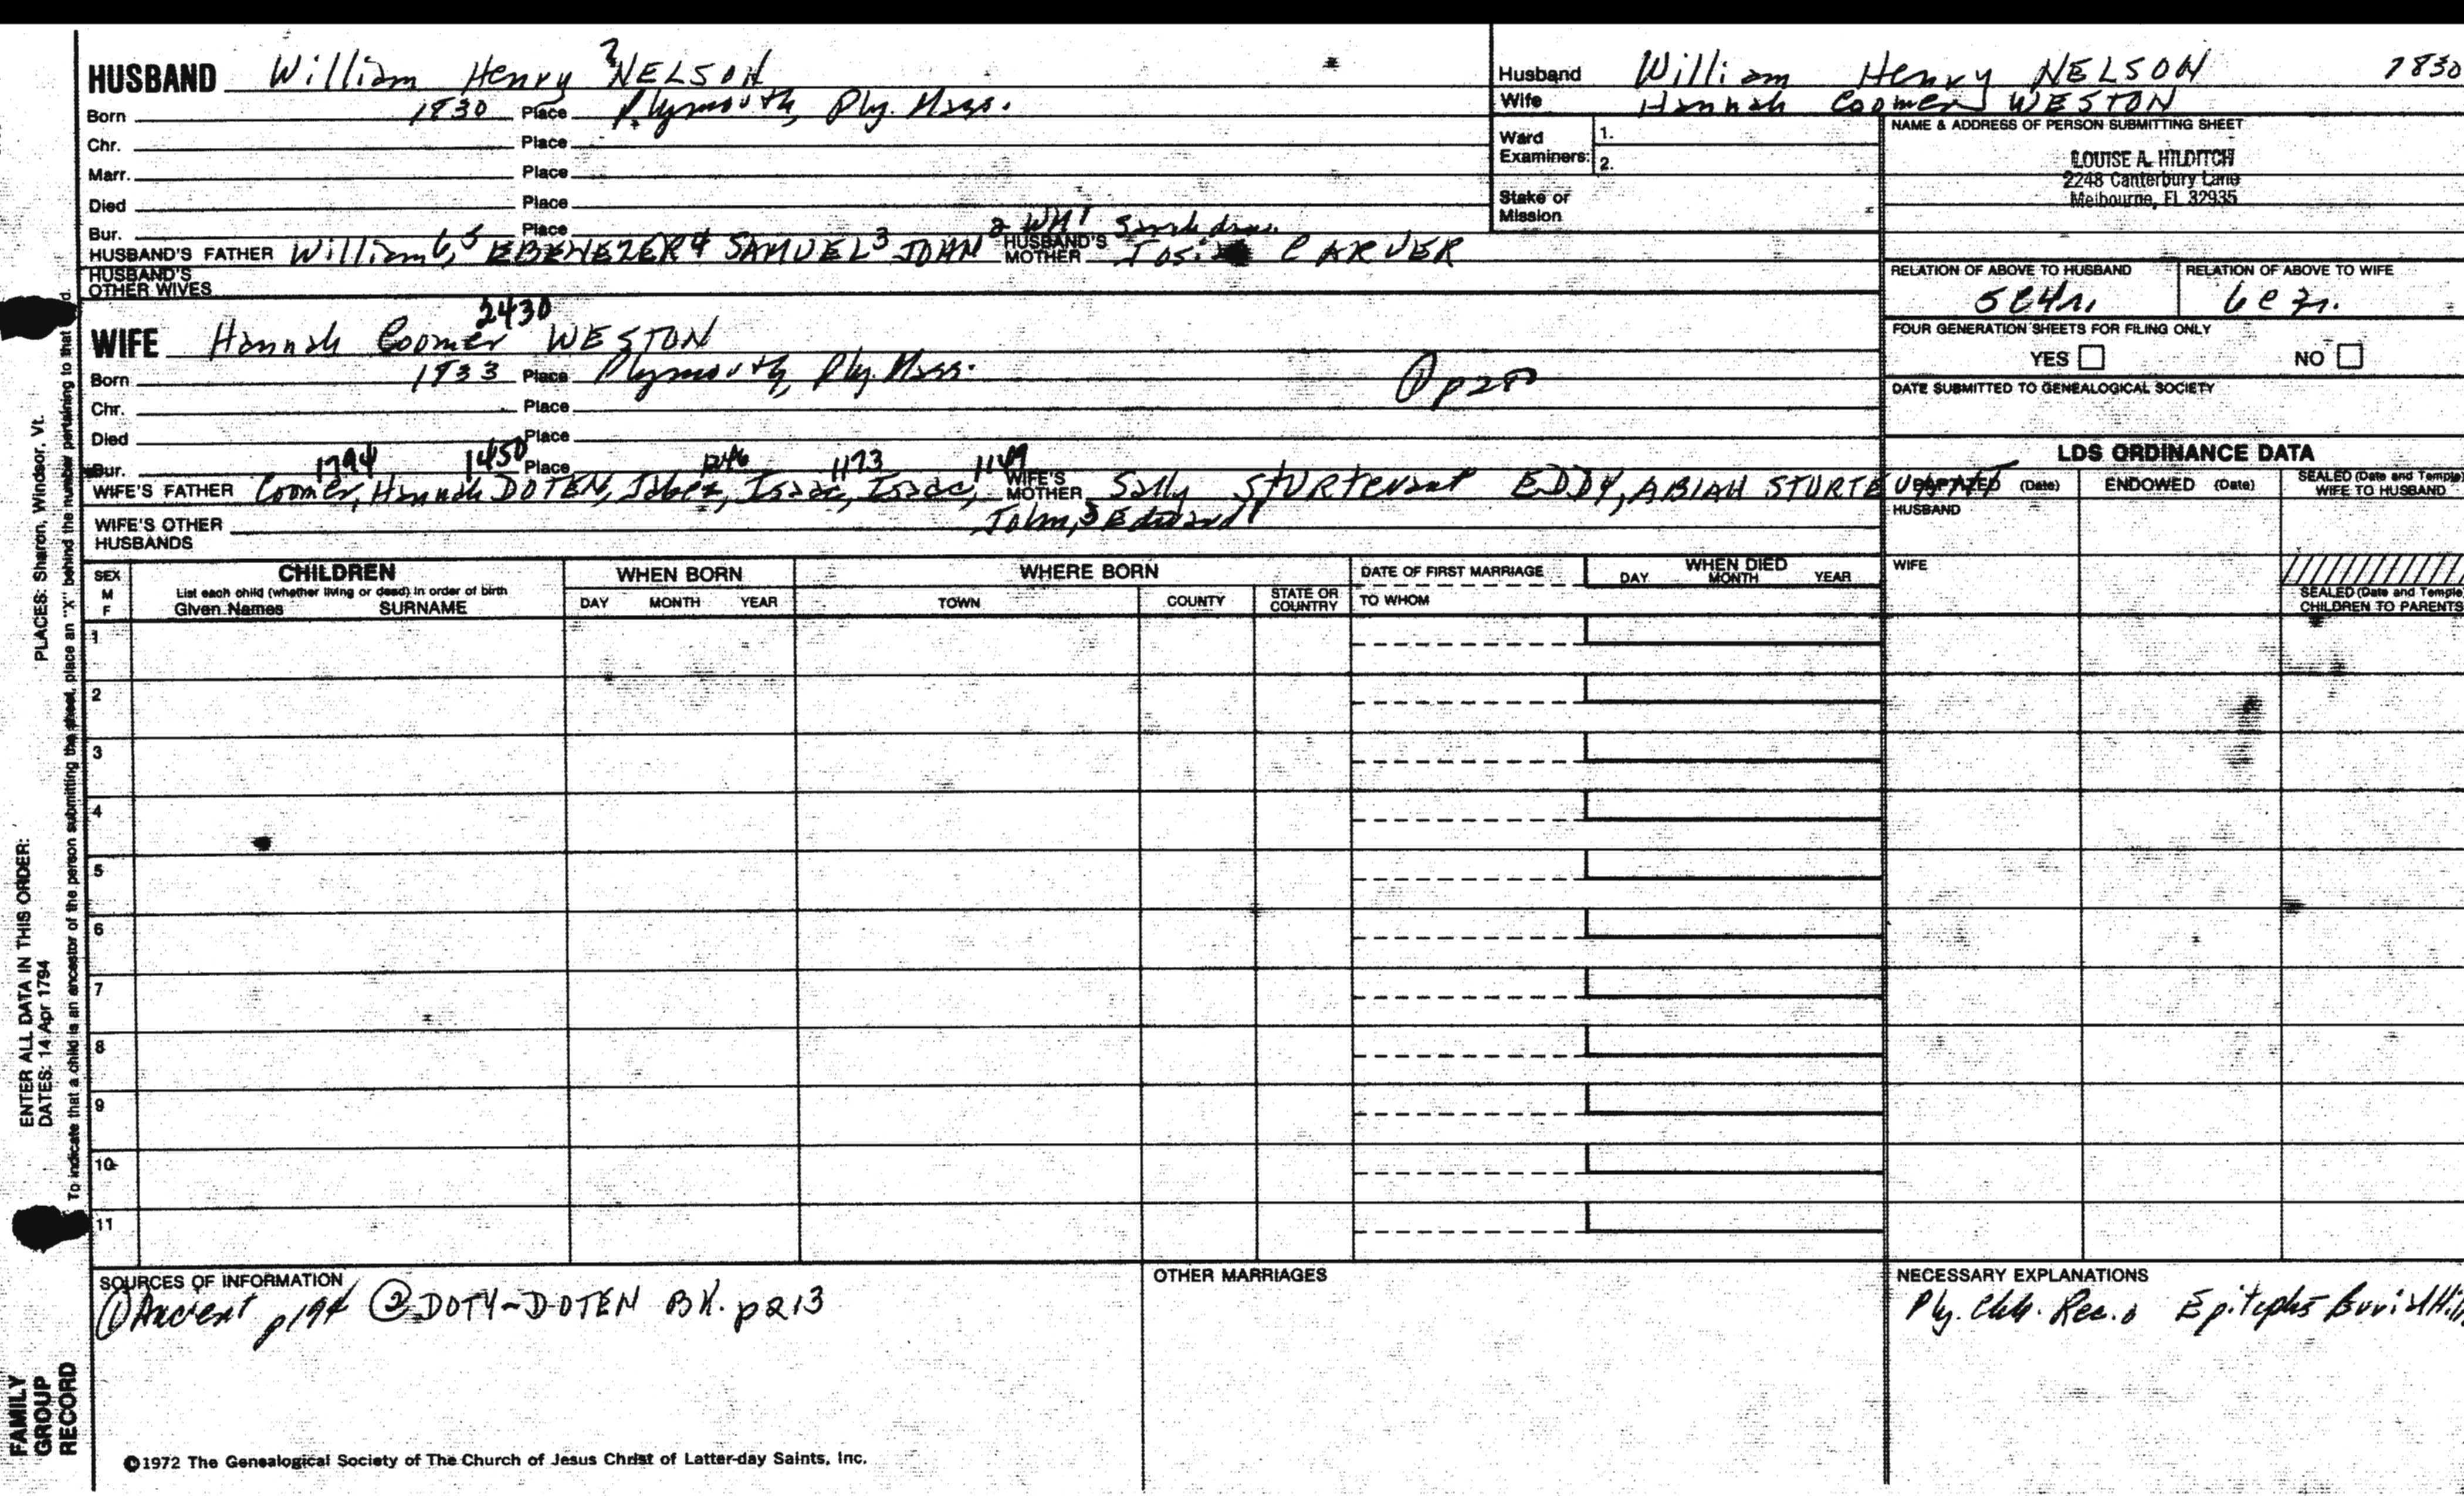 HUSBAND William Henry 7 NELSON
Born 1830 Place Plymouth, Ply. Mass.
Chr. Place
Marr. Place
Died Place
Bur. Place
HUSBAND'S FATHER William 6, 5 EBENEZER 4 SAMUEL 3 JOHN 2 WM 1 HUSBAND'S MOTHER Sarah CARVER
HUSBAND'S OTHER WIVES
Husband William Henry NELSON 1830
Wife Hannah Coomer WESTON
Ward Examiners: 1.
2.
Stake or Mission
NAME & ADDRESS OF PERSON SUBMITTING SHEET
LOUISE A. HILDITCH
2248 Canterbury Lane
Melbourne, FL 32935
RELATION OF ABOVE TO HUSBAND RELATION OF ABOVE TO WIFE
5C4r. 6C3r.
FOUR GENERATION SHEETS FOR FILING ONLY
YES NO
DATE SUBMITTED TO GENEALOGICAL SOCIETY
2430
WIFE Hannah Coomer WESTON
Born 1833 Place Plymouth, Ply. Mass.
Chr. Place
Died Place
1794 1450 1246 1173 1149
Bur. Place
WIFE'S FATHER Coomer, Hannah DOTEN, Jabez, Isaac, Isaac, WIFE'S MOTHER Sally Sturtevant EDDY, ABIAH STURTEVANT
John, 3 Edward 1
WIFE'S OTHER HUSBANDS
LDS ORDINANCE DATA
BAPTIZED (Date) ENDOWED (Date) SEALED (Date and Temple) WIFE TO HUSBAND
HUSBAND
WIFE
SEALED (Date and Temple) CHILDREN TO PARENTS
SEX M F
CHILDREN
List each child (whether living or dead) in order of birth
Given Names SURNAME
WHEN BORN
DAY MONTH YEAR
WHERE BORN
TOWN COUNTY STATE OR COUNTRY
DATE OF FIRST MARRIAGE
TO WHOM
WHEN DIED
DAY MONTH YEAR
1
2
3
4
5
6
7
8
9
10
11
SOURCES OF INFORMATION
① Ancient p194 ② DOTY-DOTEN BK. p213
OTHER MARRIAGES
NECESSARY EXPLANATIONS
Ply. Chh. Rec. Epitaphs Burial Hill
©1972 The Genealogical Society of The Church of Jesus Christ of Latter-day Saints, Inc.
FAMILY GROUP RECORD
ENTER ALL DATA IN THIS ORDER:
DATES: 14 Apr 1794
PLACES: Sharon, Windsor, Vt.
To indicate that a child is an ancestor of the person submitting the sheet, place an "X" behind the number pertaining to that